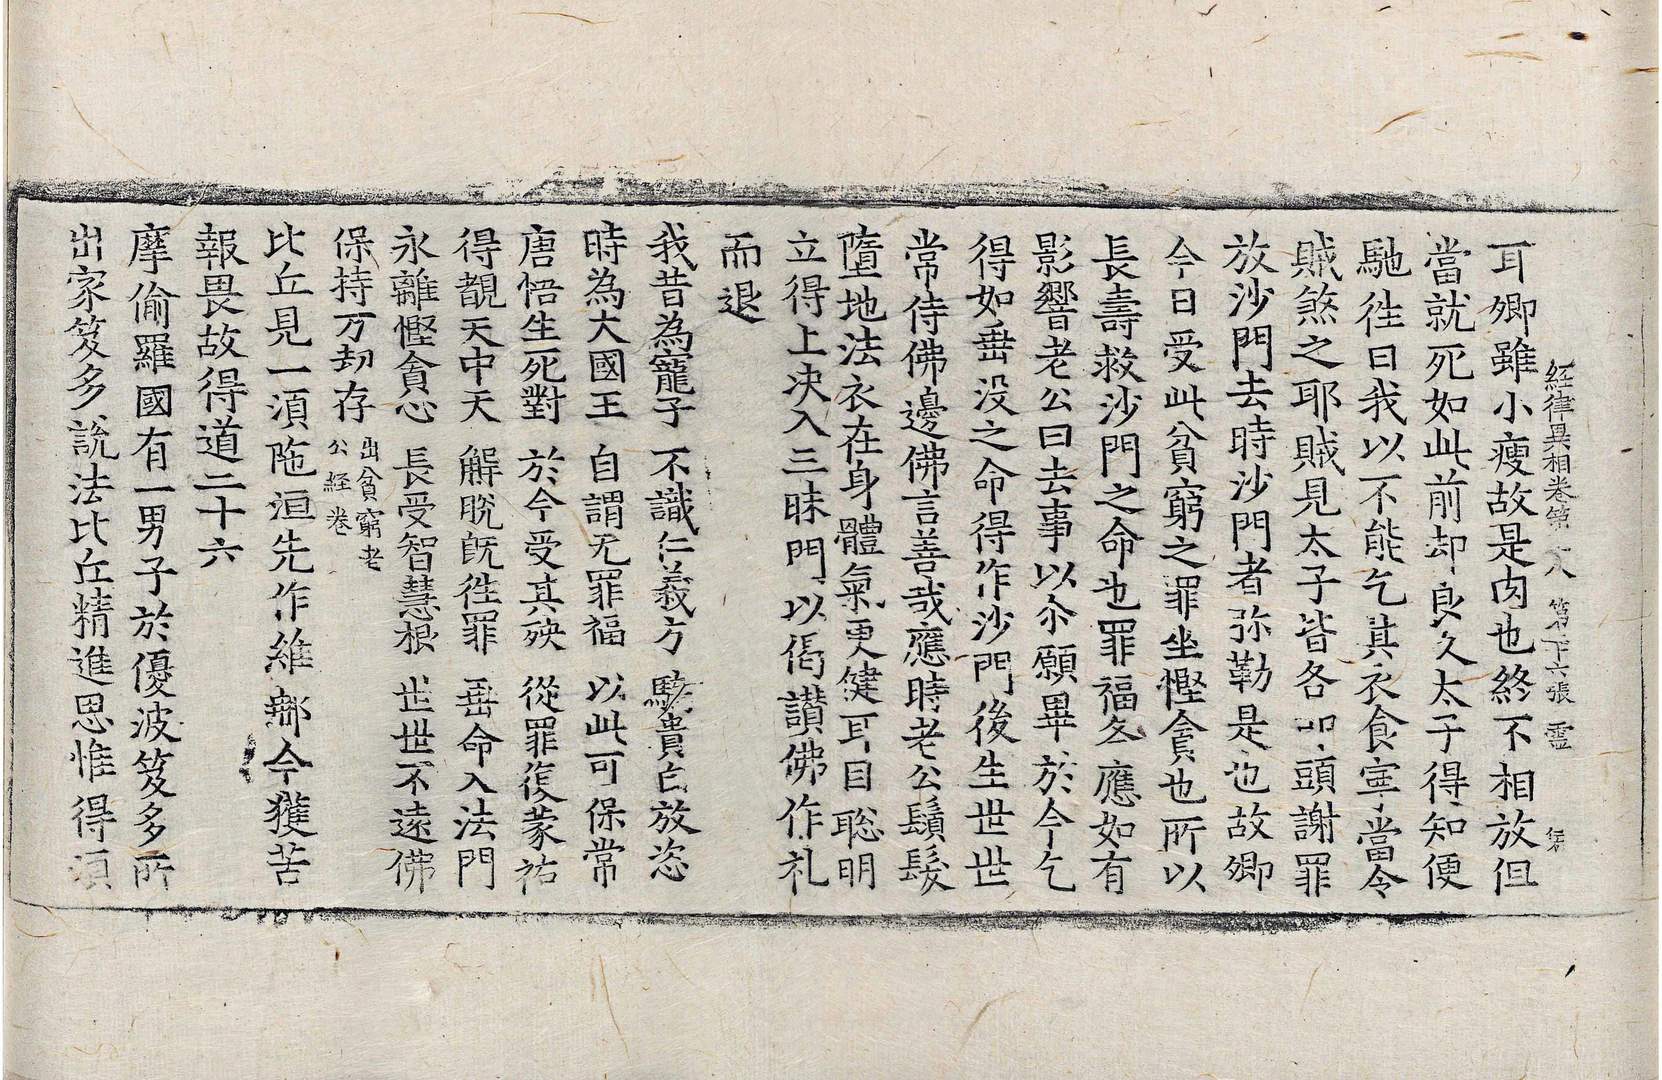 経律異相卷第十八 第十六張 霊
耳卿雖小瘦故是肉也終不相放但
當就死如此前却良久太子得知便
馳徃曰我以不能乞其衣食寧當令
賊煞之耶賊見太子皆各叩頭謝罪
放沙門去時沙門者弥勒是也故卿
今日受此貧窮之罪坐慳貪也所以
長壽救沙門之命也罪福各應如有
影響老公曰去事以尒願畢於今乞
得如垂没之命得作沙門後生世世
常侍佛邊佛言善哉應時老公鬚髮
墮地法衣在身體氣更健耳目聡明
立得上决入三昧門以偈讃佛作礼
而退
我昔為寵子 不識仁義方 驕貴自放恣
時為大國王 自謂无罪福 以此可保常
唐悟生死對 於今受其殃 從罪復蒙祐
得覩天中天 解脫既徃罪 垂命入法門
永離慳貪心 長受智慧根 世世不遠佛
保持万劫存 出貧窮老公經卷
比丘見一湏陁洹先作維𨚗今獲苦
報畏故得道二十六
摩偷羅國有一男子於優波笈多所
出家笈多說法比丘精進思惟得湏